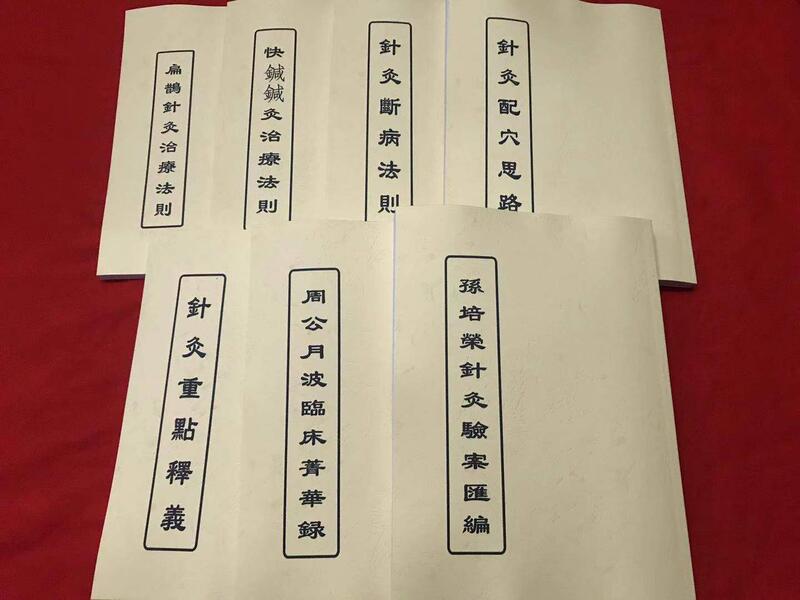 扁鵲針灸治療法則
快鍼鍼灸治療法則
針灸斷病法則
針灸配穴思路
針灸重點釋義
周公月波臨床菁華録
孫培榮針灸驗案匯編